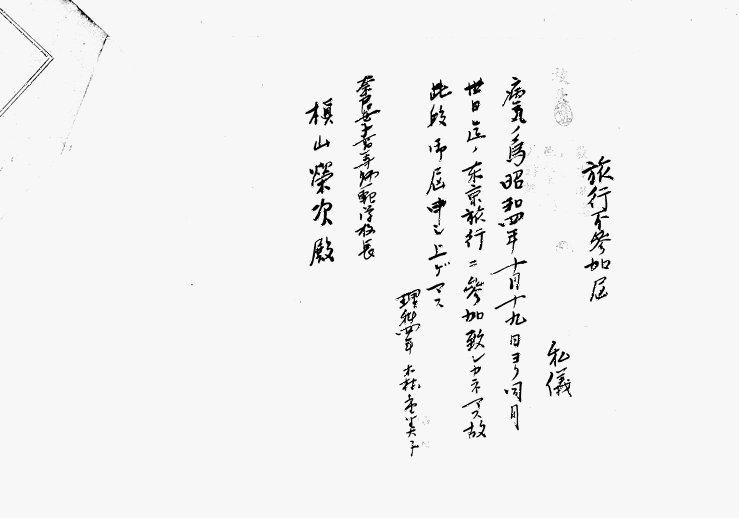 旅行不參加屆
私儀
病気ノ為昭和四年十月十九日ヨリ同月
廿日迄ノ東京旅行ニ參加致シカネマス故
此段御屆申シ上ゲマス
理科四年
奈良女子高等師範学校長
槙山榮次殿